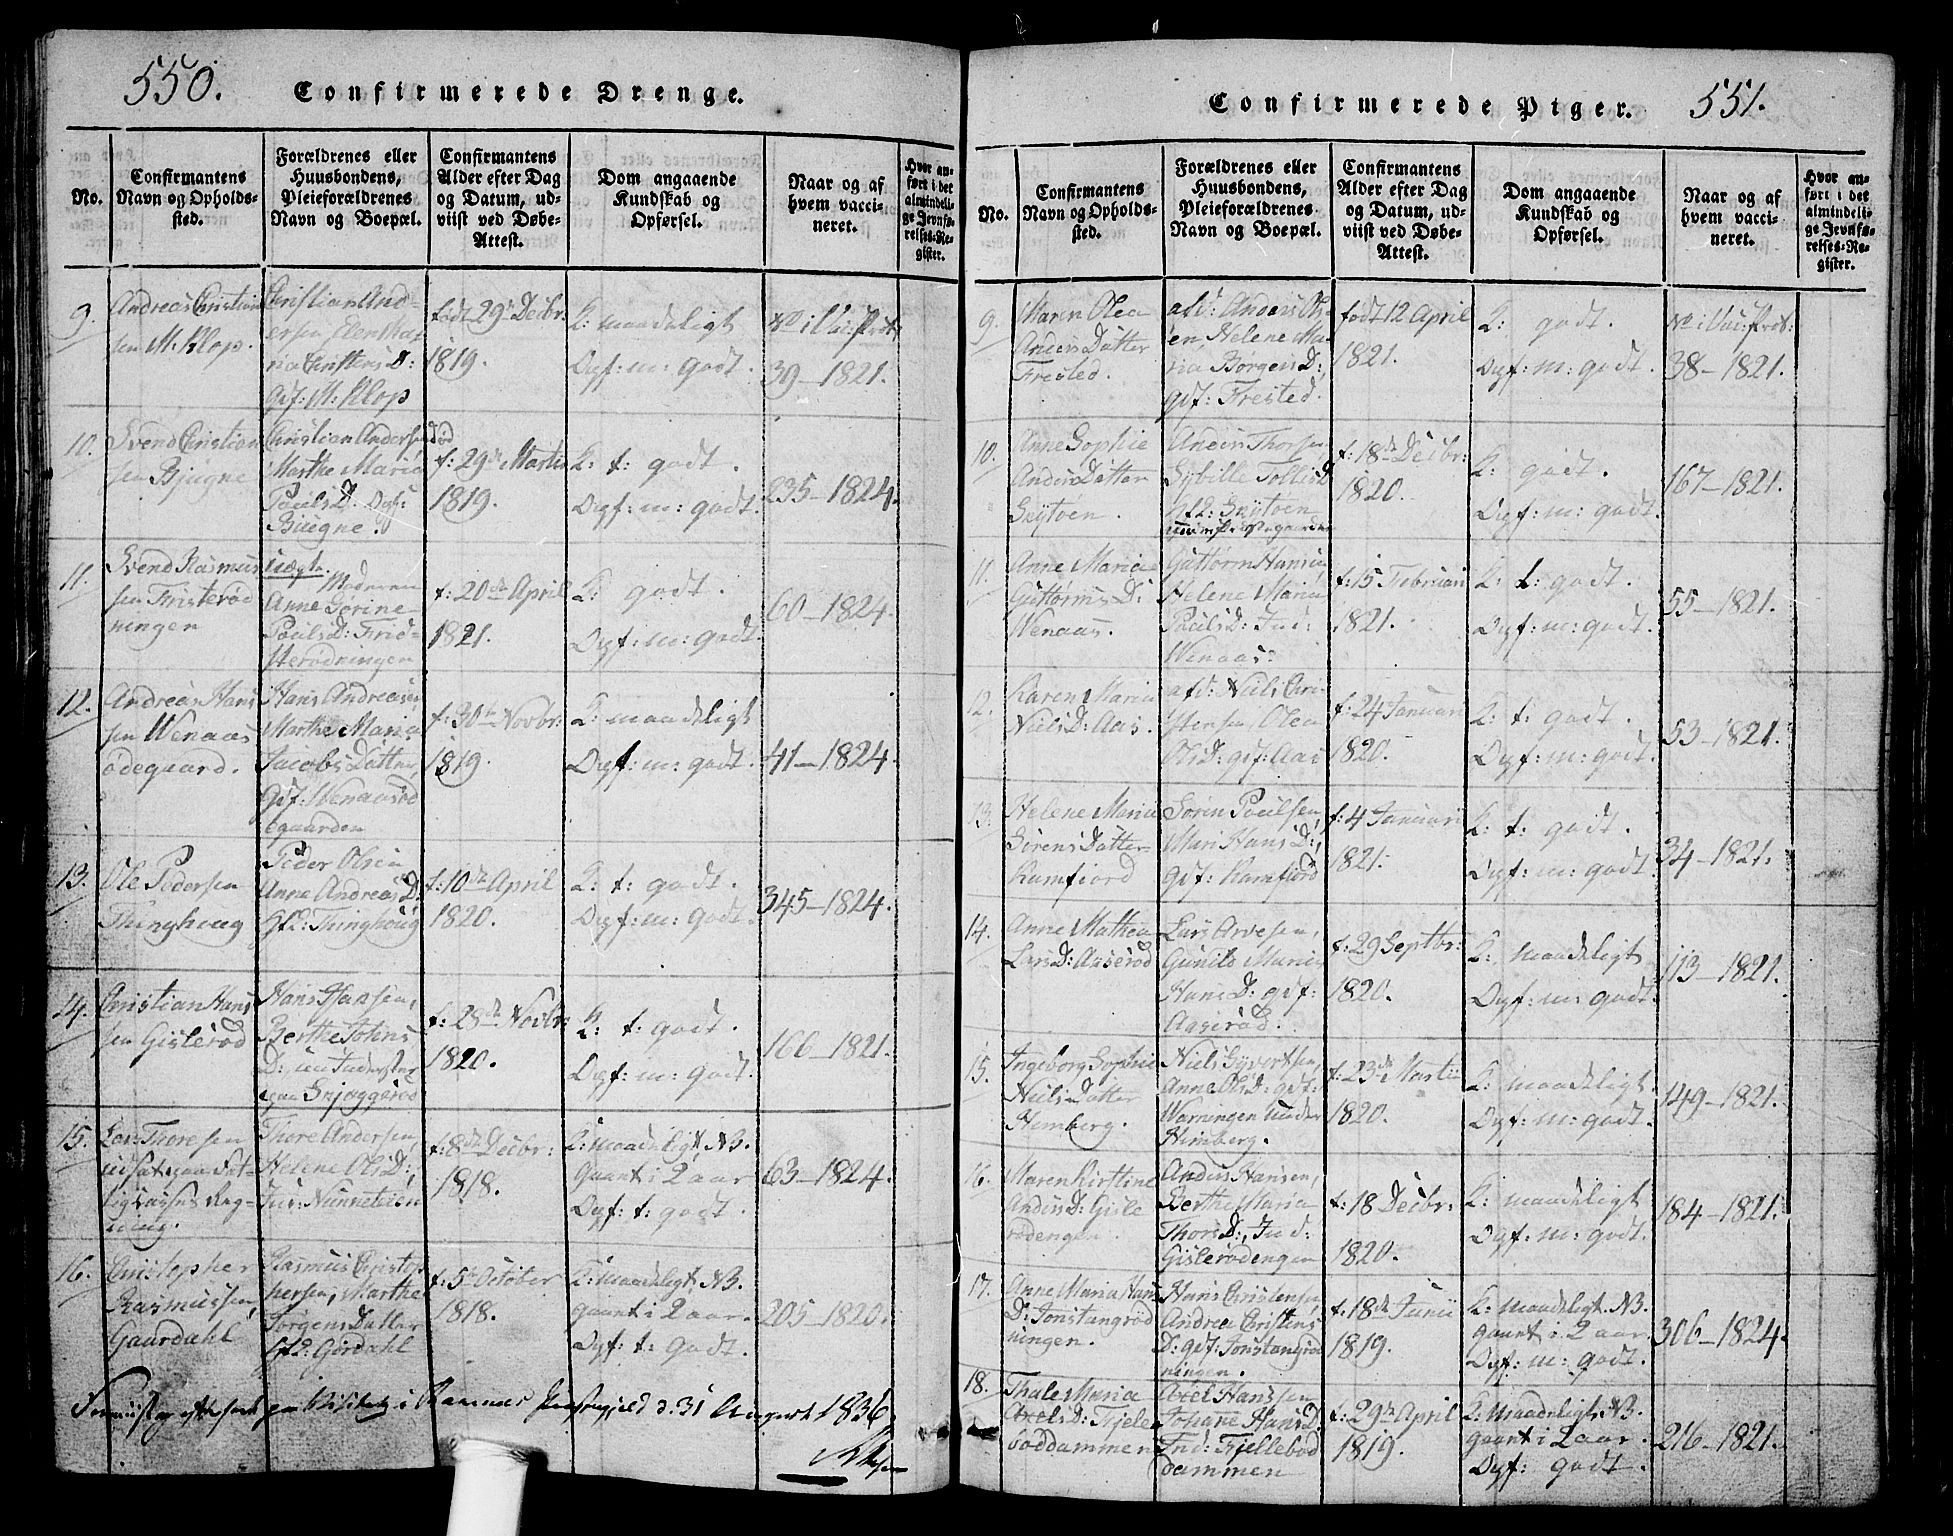 550.
Confirmerede Drenge.
No.
Confirmantens
Navn og Opholds-
sted.
Forældrenes eller
Huusbondens,
Pleieforældrenes
Navn og Boepæl.
Confirmantens
Alder efter Dag
og Datum, ud-
viist ved Døbe-
Attest.
Dom angaaende
Kundskab og
Opførsel.
Naar og af
hvem vacci-
neret.
Hvor an-
ført i det
almindeli-
ge Jevnfø-
relses-Re-
gister.
9.
Andreas Christian
sen M. Klop.
Christian And-
ersen Ellen Kat
ria Christens D:
gif: M. Klop
født 29d Decbr:
1819.
K: maadeligt
Opf: m: godt.
No i Vac: Prot:
39-1821.
10.
Svend Christian
sen Bjugne
Christian Andersen
Marthe Maria
Pouls D. Opf:
Biugne.
f: 29d Martii
1819.
K: t: godt.
Opf: m: godt.
235-1824.
11.
Svend Rasmus
sen Fristerød
ningen
Uægte. Moderen
Anne Sorine
Pouls D: Frid-
sterødningen
f: 20de April
1821.
K: godt.
Opf: m: godt.
60-1824.
12.
Andreas Hans
sen Wenaas
ødegaard.
Hans Andreasen
Marthe Maria
Jacobs Datter,
gif: Wenaasød
egaarden
f: 30te Novbr:
1819.
K: maadeligt
Opf: m: godt.
41-1824.
13.
Ole Pedersen
Thinghoug
Peder Olsen
Anne Andreas D:
Thinghoug
f: 10de April
1820.
K: t: godt.
Opf: m: godt.
345-1824.
14.
Christian Hans
sen Gislerød
Hans Hansen,
Berthe Johns
D:
f: 28de Novbr:
1820.
K: t: godt.
Opf: m: godt.
166-1821.
15.
Lars Thoresen
Thore Andersen
Helene Ols D:,
f: 8de Decbr:
1818.
K: maadeligt, NB.
gaaet i 2 aar
Opf: t: godt.
63-1824.
16.
Christopher
Rasmussen,
Gaardahl
Rasmus Christop
hersen, Marthe
Jørgens Datter
Gordahl
f: 5te October
1818.
K: maadeligt, NB.
gaaet i 2 aar.
Opf: t: godt.
205-1820.
paa Visitats i Præstegjeld d. 31 August 1836
Confirmerede Piger.
551.
No.
Confirmantens
Navn og Opholds-
sted.
Forældrenes eller
Huusbondens,
Pleieforældrenes
Navn og Boepæl.
Confirmantens
Alder efter Dag
og Datum, ud-
viist ved Døbe-
Attest.
Dom angaaende
Kundskab og
Opførsel.
Naar og af
hvem vacci-
neret.
Hvor an-
ført i det
almindeli-
ge Jevnfø-
relses-Re-
gister.
9.
Maren Olea
Anders Datter
Frested.
afd: Anders Ols-
en, Helene Ma-
ria Børgens D:,
gif: Frested.
født 12 April
1821.
K: godt.
Opf: m: godt.
No i Vac: Prot:
38-1821.
10.
Anne Sophie
Anders Datter
Skytøen.
Anders Thorsen
Sybille Tollis D
Skytøen
f: 18de Decbr:
1820.
K: godt.
Opf: m: godt.
167-1821.
11.
Anne Maria
Guttorms D:
Wenaas.
Guttorm Hansen
Helene Maria
Pauls D: Ind:
Wenaas.
f: 15 Februari
1821.
K: t: godt.
Opf: m: godt.
55-1821.
12.
Karen Maria
Niels D: Aas.
afd: Niels Chri-
stensen, Olea
Ols D: gif: Aas
f: 24 Januari
1820.
K: t: godt.
Opf: m: godt.
53-1821.
13.
Helene Maria
Sørens Datter
Ramfiord
Søren Paulsen,
Mari Hans D:,
gif: Ramfiord
f: 4 Januari
1821:
K: t: godt.
Opf: m: godt.
34-1821.
14.
Anne Mathea
Lars D: Aaserød
Lars Arvesen,
Gunild Maria
Hans D: gif:
Aaserød.
f: 29 Septbr:
1820.
K: maadeligt
Opf: m: godt.
113-1821.
15.
Ingeborg Sophie
Niels Datter
Himberg.
Niels Syvertsen,
Anne Ols D: gif:
Warningen under
Himberg.
f: 23de Martii
1820.
K: maadeligt.
Opf: m: godt.
149-1821.
16.
Maren Kirstine
Anders D: Gisle
rødengen.
Anders Hansen,
Berthe Maria
Thors D:, Ind:
Gislerødengen
f: 18 Decbr:
1820.
K: maadeligt
Opf: m: godt.
184-1821.
17.
Anne Maria Hans
D: Jonstangrød
ningen.
Hans Christensen,
Andrea Christens
D: gif: Jonstangrød
ningen.
f: 18de Junii
1819.
K: maadeligt. NB.
gaaet i 2 aar.
Opf: m: godt.
306-1824.
18.
Thale Maria
Axels D: Fjelle
bøddammen
Axel Hanssen
Johane Hans D:
Ind: Fjellebød
dammen
f: 29de April
1819.
K: maadeligt, NB.
gaaet i 2 aar.
Opf: godt.
216-1821.